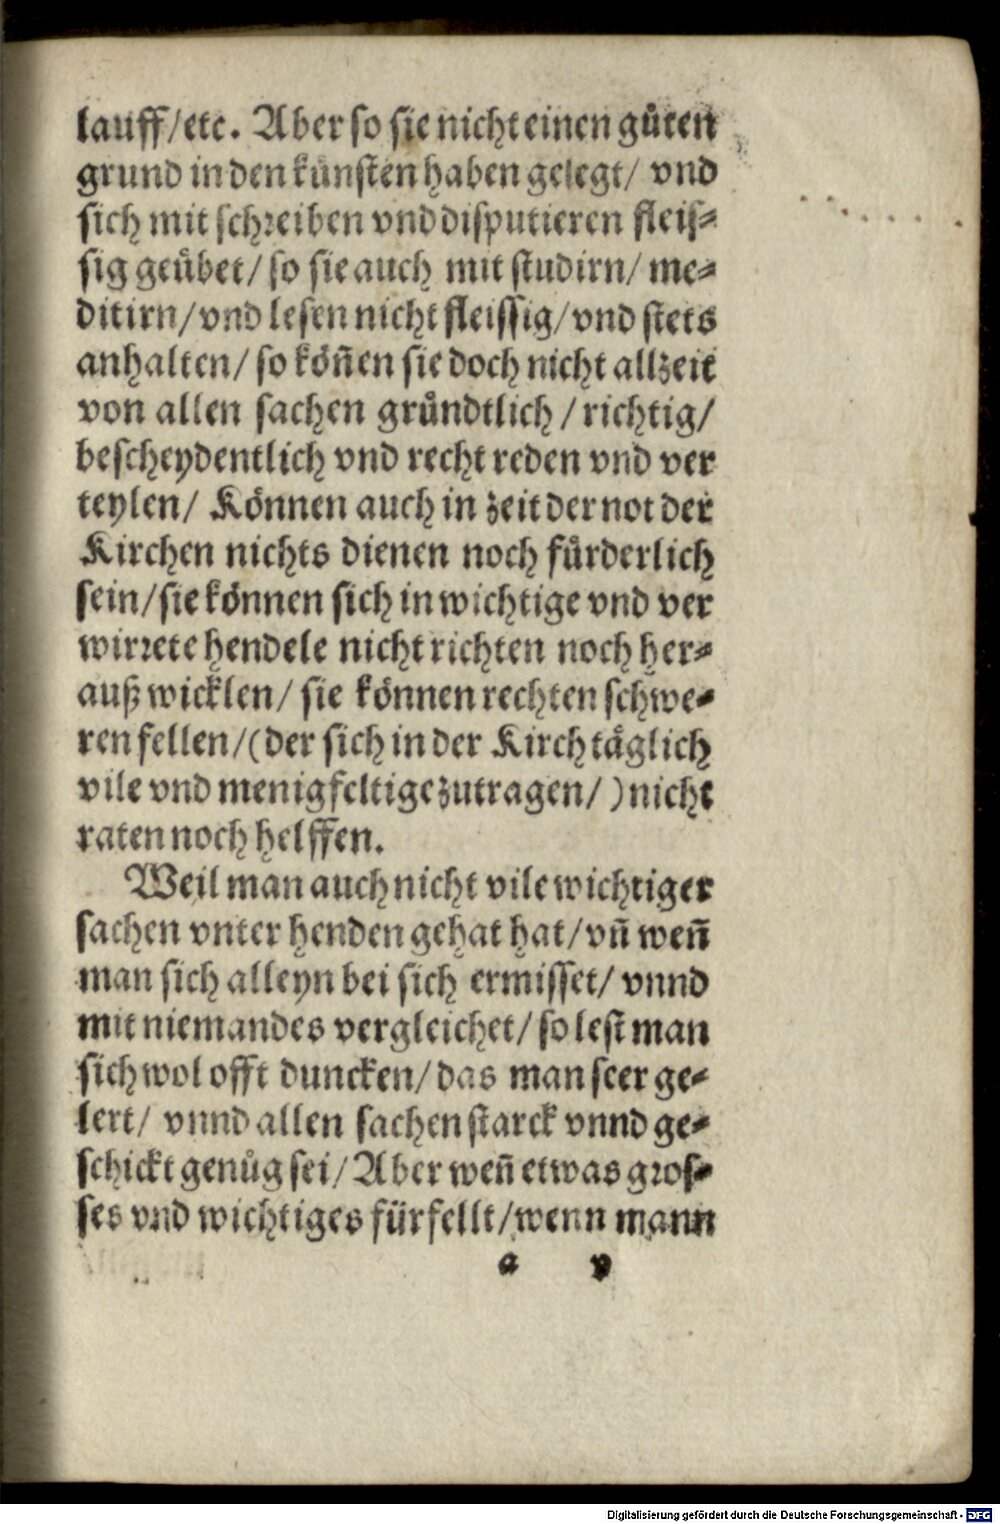 lauff/etc. Aber so sie nicht einen gůten
grund in den künsten haben gelegt/ vnd
sich mit schreiben vnd disputieren fleis-
sig geübet/ so sie auch mit studirn/ me-
ditirn/ vnd lesen nicht fleissig/ vnd stets
anhalten/ so kön̄en sie doch nicht allzeit
von allen sachen gründtlich/ richtig/
bescheydentlich vnd recht reden vnd ver
teylen/ Können auch in zeit der not der
Kirchen nichts dienen noch fürderlich
sein/ sie können sich in wichtige vnd ver
wirrete hendele nicht richten noch her-
auß wicklen/ sie können rechten schwe-
ren fellen/ (der sich in der Kirch täglich
vile vnd menigfeltige zutragen/) nicht
raten noch helffen.
Weil man auch nicht vile wichtiger
sachen vnter henden gehat hat/ vn̄ wen̄
man sich alleyn bei sich ermisset/ vnnd
mit niemandes vergleichet/ so lest man
sich wol offt duncken/ das man seer ge-
lert/ vnnd allen sachen starck vnnd ge-
schickt genůg sei/ Aber wen̄ etwas gros-
ses vnd wichtiges fürfellt/ wenn mann
a v
Digitalisierung gefördert durch die Deutsche Forschungsgemeinschaft - DFG